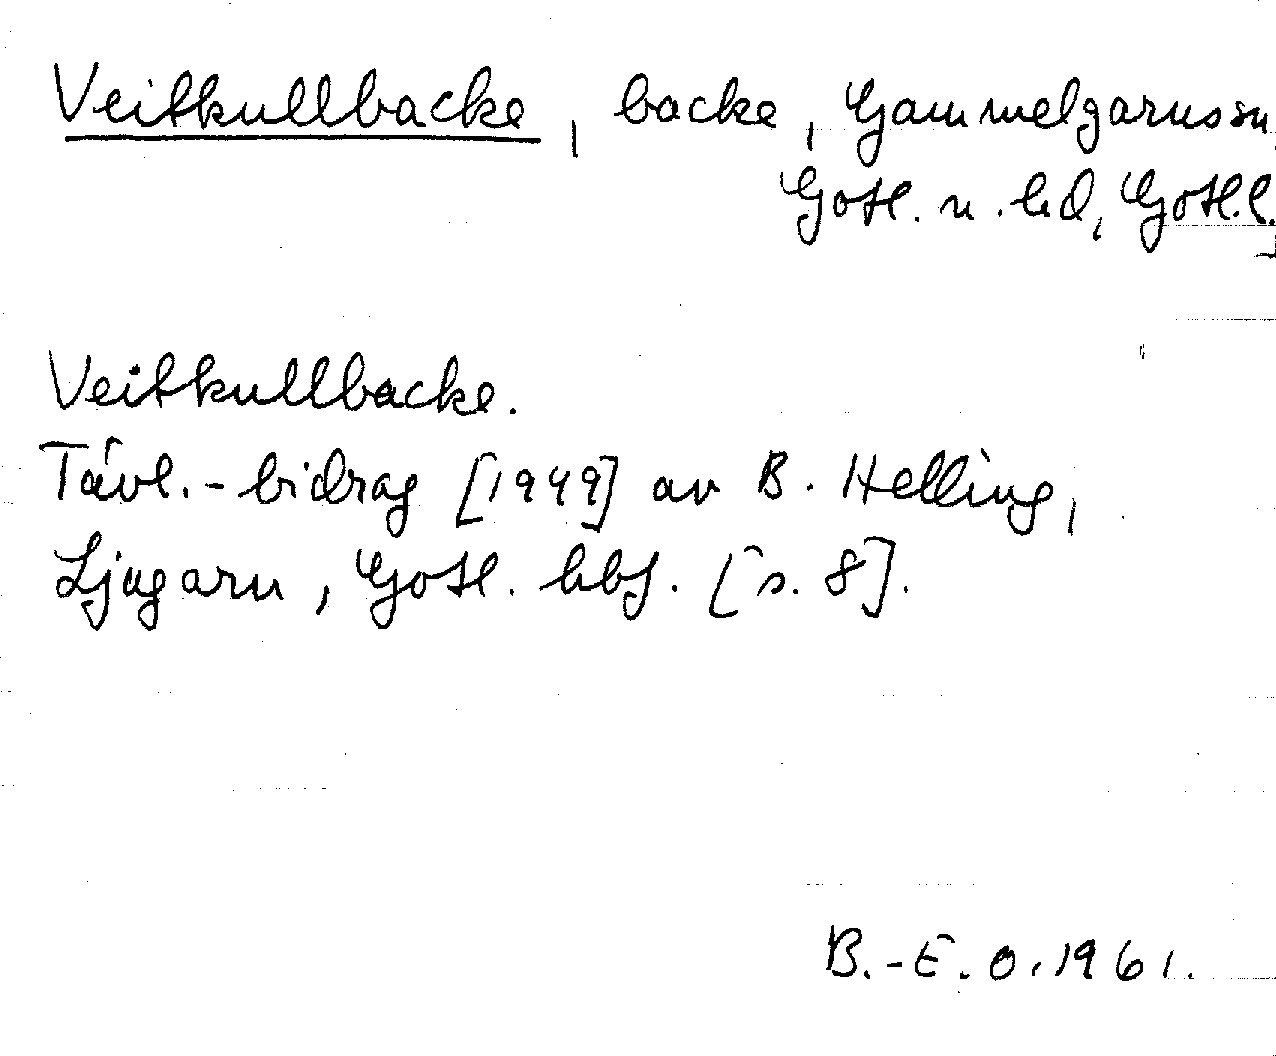 Veitkullbacke, backe, Gammelgarns sn
Gotl. n. hd, Gotl. l.
Veitkullbacke.
Tävl.-bidrag [1949] av B. Helling,
Ljugarn, Gotl. hbf. [s. 8].
B.-E. O. 1961.